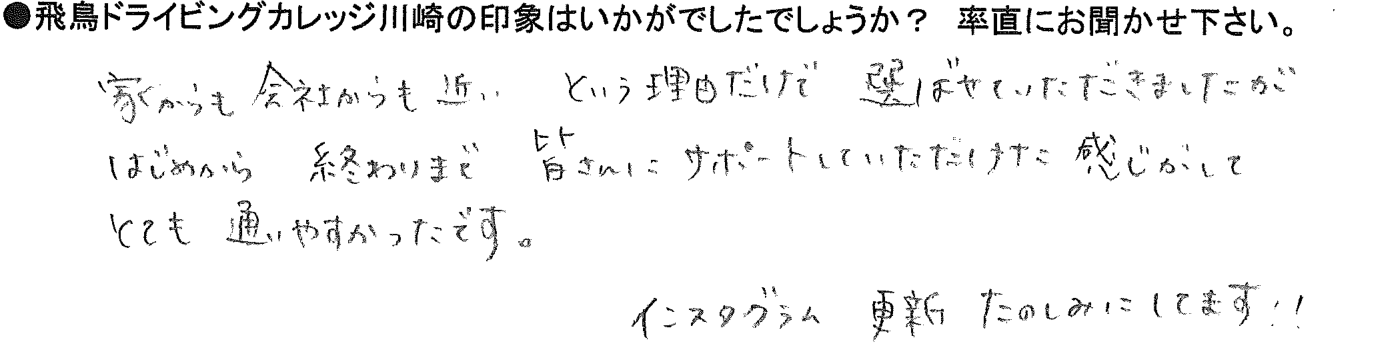 ●飛鳥ドライビングカレッジ川崎の印象はいかがでしたでしょうか？ 率直にお聞かせ下さい。
家からも会社からも近い という理由だけで 選ばせていただきましたが
はじめから 終わりまで 皆さんに サポートしていただけた 感じがして
とても 通いやすかったです。
インスタグラム 更新 たのしみにしてます!!